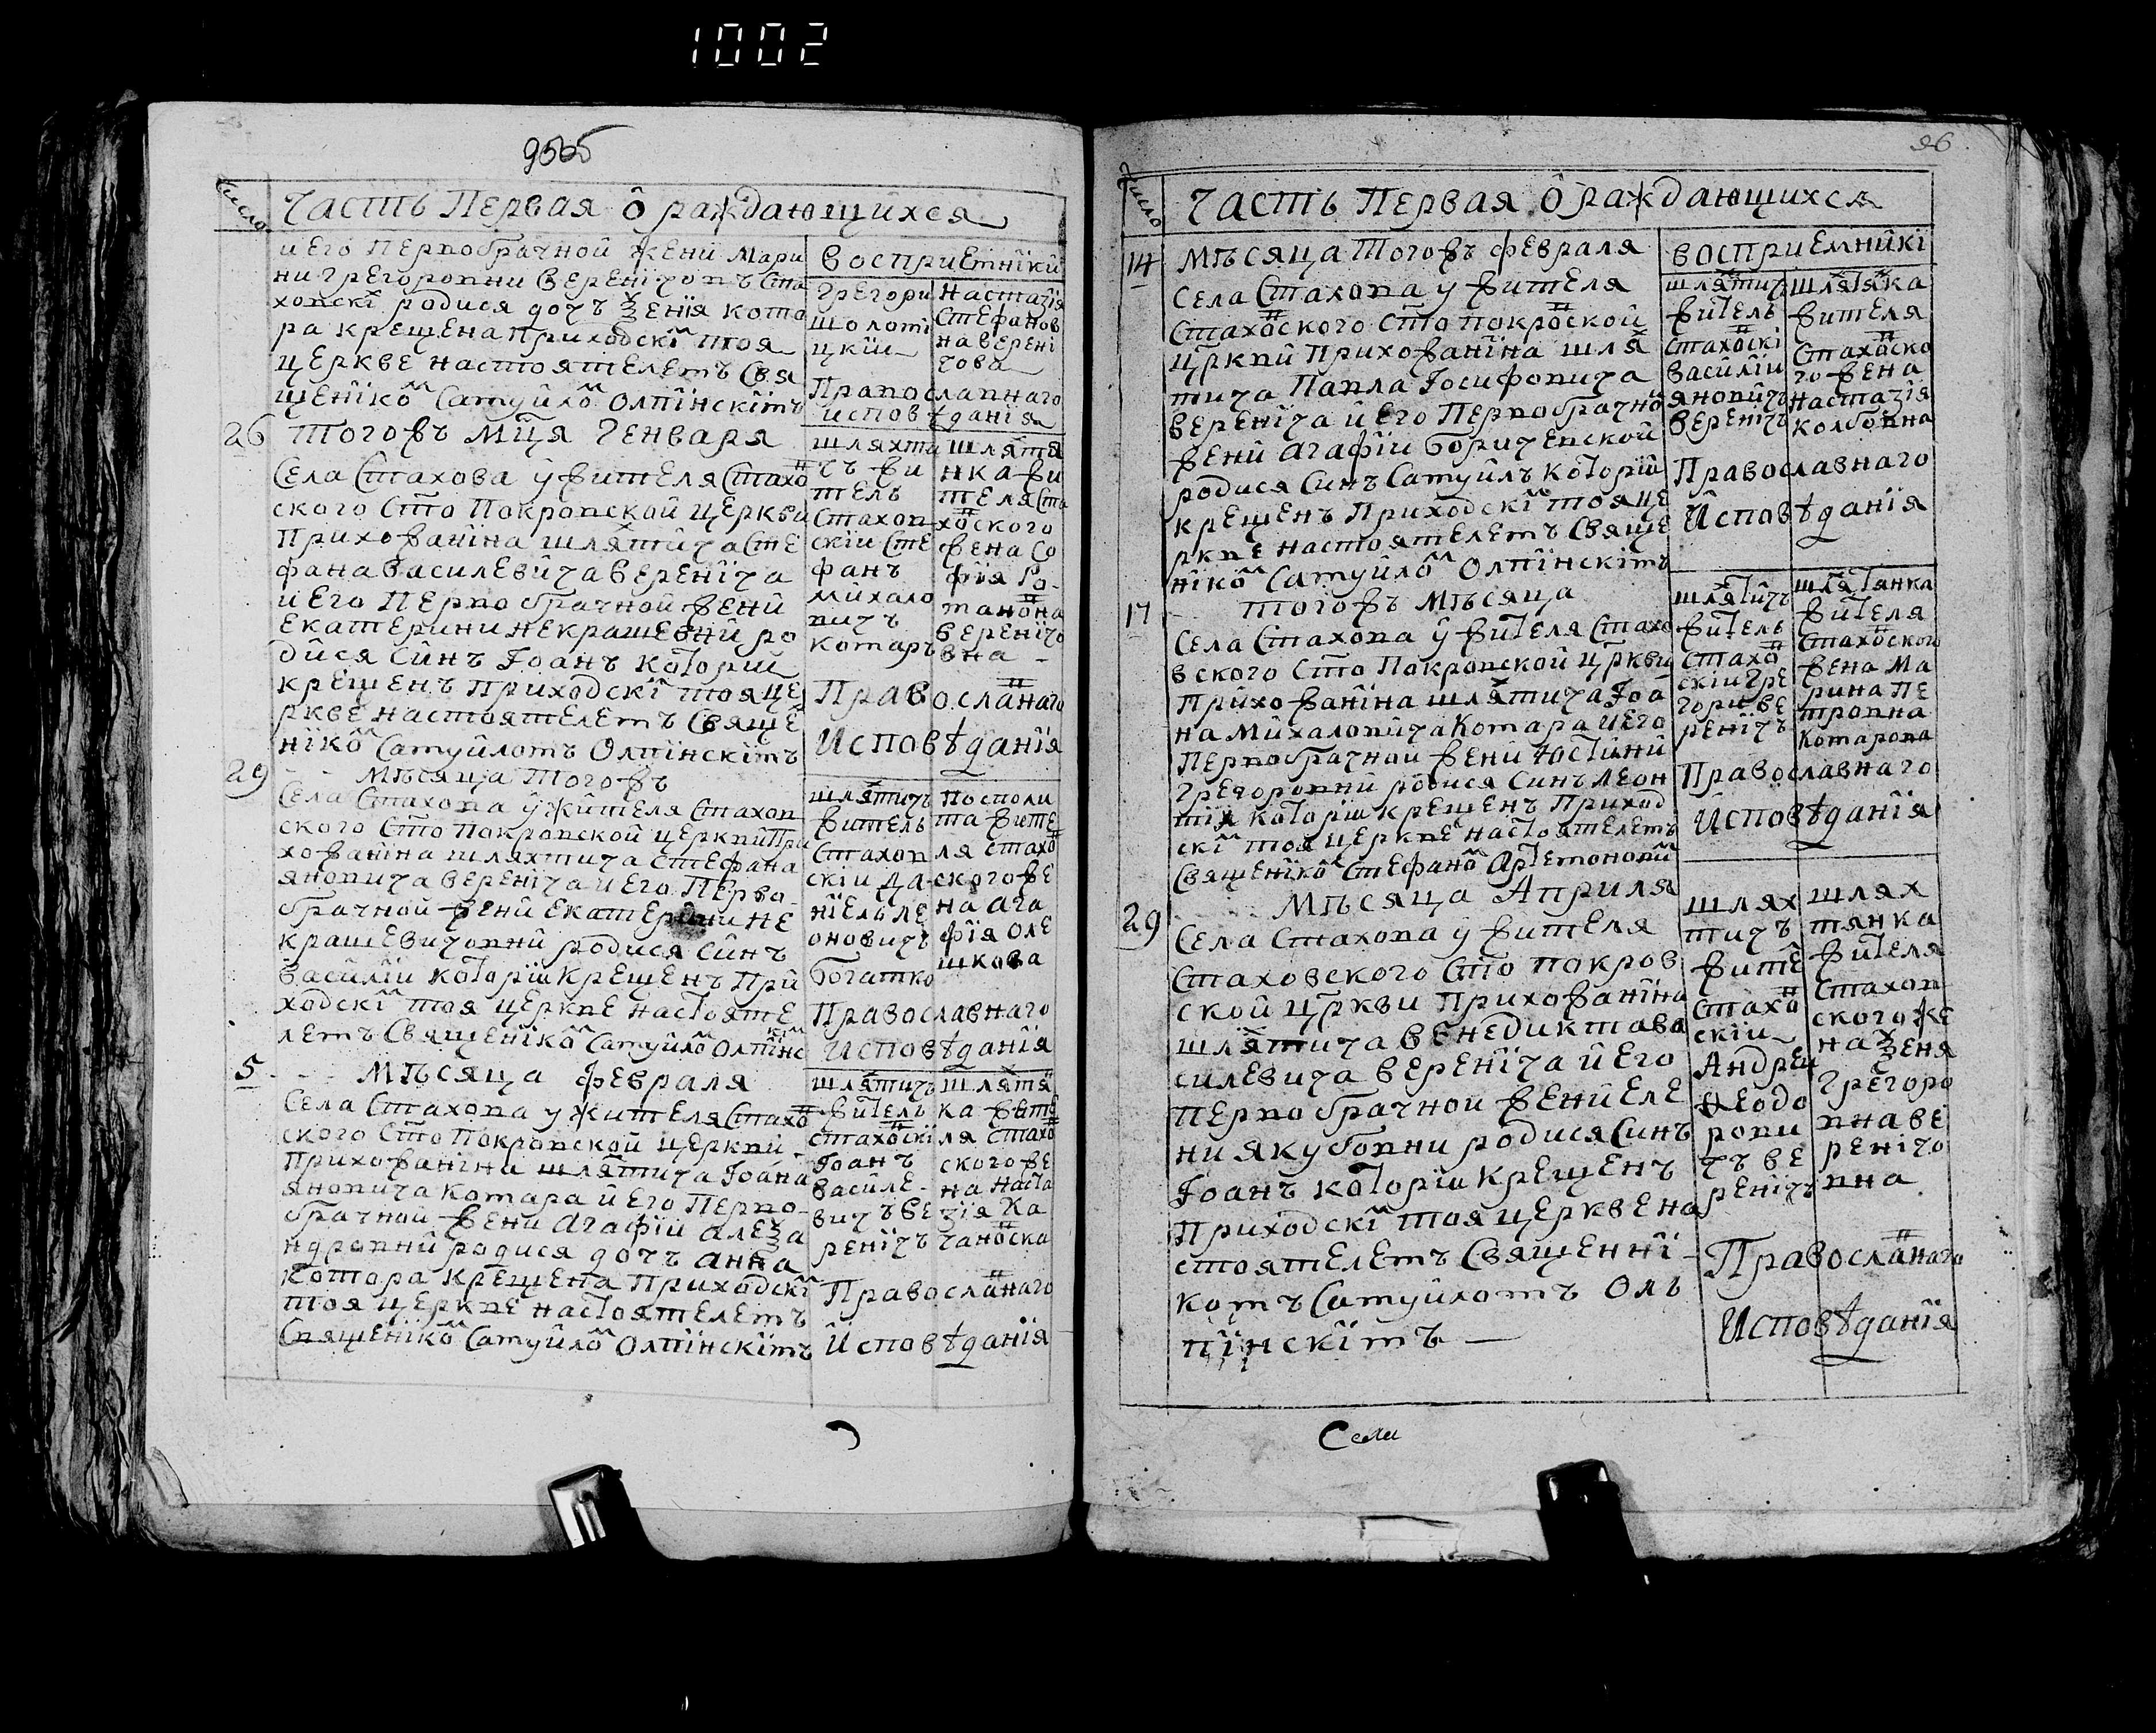 1002
Число
Часть Первая ô раждающихся
и его первобрачной жени Мари
ни Грегоровни Веренїчовъ Ста
ховскї родися дочъ Ѯенїя кото
ра крещена Приходскї тоя
церкве настоятелемъ Свя
щенїкô Самуйлô Олпїнскїмъ
воспрїемнїки
Грегори
Шолоті
цкїи
Настазїя
Стефанов
на Верені
чова
Православнаго
исповѣданїя
26
тогожъ мця Генваря
Села Стахова у жителя Стахо
ского Сто Покровской церкви
Прихожанїна шляхтича Сте
фана Василевича Веренїча
и его первобрачной жени
Екатерини Некрашевни ро
дися Синъ Іоанъ которїи
крещенъ приходскї тояце
ркве настоятелемъ Свяще
нїкô Самуйломъ Олпїнскїмъ
шляхти
чъ жи
тель
Стахов
скїи Сте
фанъ
Михало
вичъ
Котаръ
шляхтя
нка жи
теля Ста
хоского
жена Со
фїя Ро
манона
Веренїчо
вна
Православнаго
Исповѣданїя
29
Мѣсяца тогожъ
Села Стахова у жителя Стахов
ского Сто покровской церкви При
хожанїна шляхтича Стефана
Яновича Веренїча и его перво
брачной жени Екатерини Не
крашевичовни родися синъ
Василїи которїи крещенъ При
ходскї тоя церкве настояте
лемъ Священїкô Самуйлô Олпїнс
кї
шляхтичъ
житель
Стахов
скїи Да
нїелъ Ле
оновичъ
Богатко
посполи
та жите
ля Стахо
ского же
на Ага
фїя Оле
шкова
Православнаго
исповѣданїя
5
Мѣсяца февраля
Села Стахова у жителя Стахо
ского Сто Покровской церкви
Прихожанїна шляхтича Іоана
Яновича Котара и его перво
брачной жени Агафїи Алеѯа
ндровни родися дочъ Анна
котора крещена приходскї
тоя церкве настоятелемъ
Священїкô Самуйлô Олпїнскїмъ
шляхтичъ
житель
стахоскї
Іоанъ
Василе
вичъ Ве
ренїчъ
шляхтя
ка жите
ля Стахо
ского же
на Наста
зїя Ка
чаноска
Православнаго
Исповѣданїя
96
Число
Часть Первая ô раждающихся
14
Мѣсяца тогожъ февраля
Села Стахова у жителя
Стахоского Сто покроской
цркви Прихожанїна шля
тича Павла Іосифовича
Веренїча и его первобрачно
жени Агафїи Боричевской
родися Синъ Самуйлъ которїи
крещенъ Приходскї тояце
ркве настоятелемъ Свяще
нїкô Самуйлô Олпїнскїмъ
воспрїемнїкі
шлятичъ
житель
Стахоскі
Василїи
Яновичъ
Веренїчъ
шлятяка
жителя
Стахоско
го жена
Настазїя
Колбовна
Православнаго
Исповѣданїя
17
тогожъ мѣсяца
Села Стахова у жителя Стахо
вского Сто Покровской цркви
Прихожанїна шлятича Іоа
на Михаловича Котара и его
первобрачной жени Юстини
Грегоровни родися Синъ Леон
тїи которїи крещенъ Приход
скї тоя церкве настоятелемъ
Священїкô Стефанô Артемонови
шлятичъ
житель
Стахо
скїи Гре
гори Ве
ренїчъ
шлятянка
жителя
Стахоского
жена Ма
рина Пе
тровна
Котарова
Православнаго
Исповѣданїя
29
Мѣсяца Априля
Села Стахова у жителя
Стаховского Сто покров
ской цркви Прихожанїна
шлятича Венедикта Ва
силевича Веренїча и его
первобрачной жени Еле
ни Якубовни родися Синъ
Іоанъ которїи крещенъ
Приходскї тоя церкве на
стоятелемъ Священнї
комъ Самуйхомъ Оль
пїнскїмъ
шлях
тичъ
жите
Стахо
скїи
Андреи
Ѳеодо
рови
чъ Ве
ренїчъ
шлях
тянка
жителя
Стахов
ского же
на Ѯеня
Грегоро
вна Ве
ренїчо
вна
Православнаго
Исповѣданїя
Села